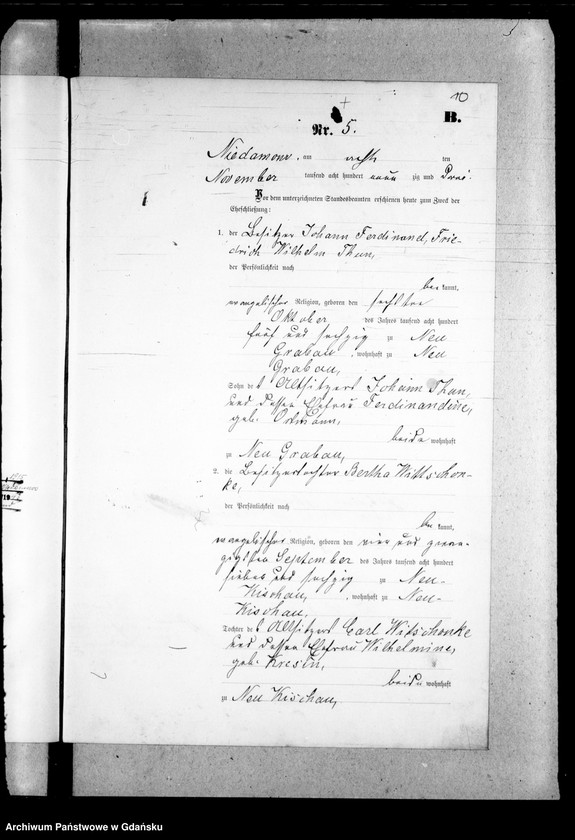 10
B.
Nr. 5.
Niedamowo. am acht ten
November tausend acht hundert neun zig und Drei.
Vor dem unterzeichneten Standesbeamten erschienen heute zum Zweck der
Eheschließung:
1. der Besitzer Johann Ferdinand, Frie-
drich Wilhelm Thun,
der Persönlichkeit nach
be kannt,
evangelischer Religion, geboren den sechsten
Oktober des Jahres tausend acht hundert
fünf und sechzig zu Neu
Grabau, wohnhaft zu Neu
Grabau,
Sohn des Altsitzers Johann Thun,
und dessen Ehefrau Ferdinandine,
geb. Ortmann,
beide wohnhaft
zu Neu Grabau,
2. die Besitzertochter Bertha Wittschon-
ke,
der Persönlichkeit nach
be kannt,
evangelischer Religion, geboren den vier und zwan-
zigsten September des Jahres tausend acht hundert
sieben und sechzig zu Neu-
Kischau, wohnhaft zu Neu-
Kischau,
Tochter des Altsitzers Carl Witschonke
und dessen Ehefrau Wilhelmine,
geb. Kresin,
beide wohnhaft
zu Neu Kischau,
Archiwum Państwowe w Gdańsku